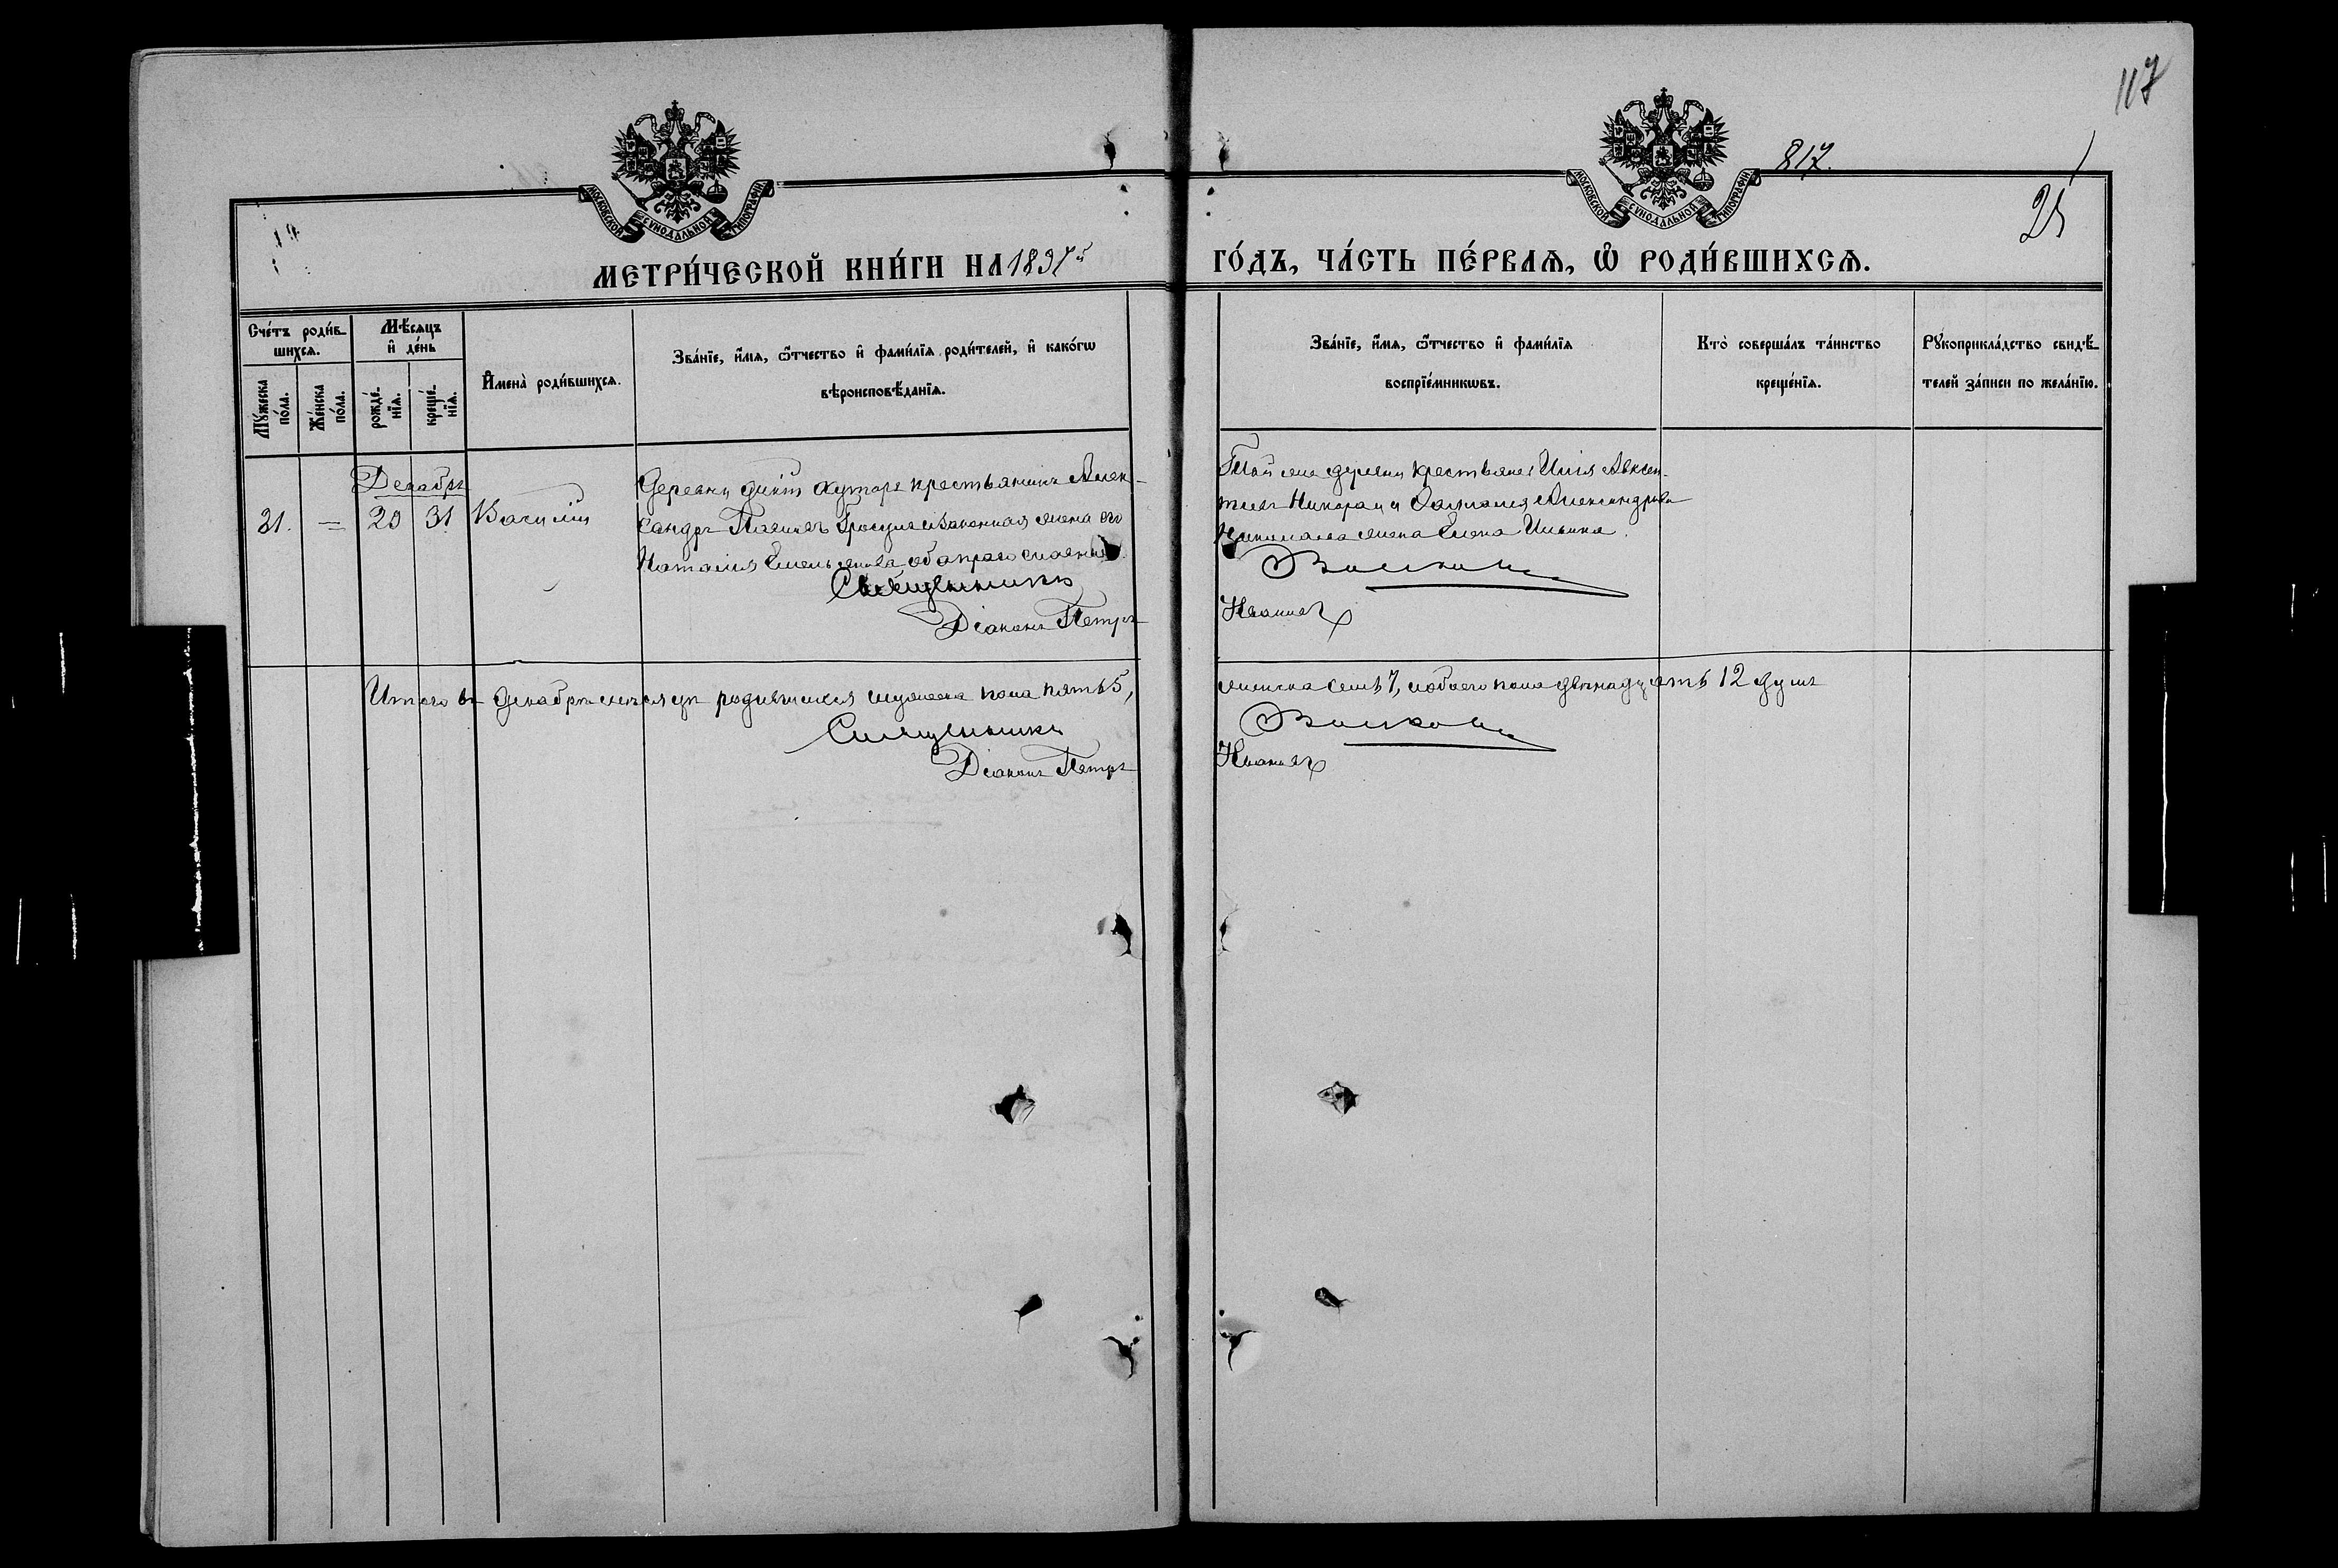 117
817.
25
МОСКОВСКОЙ СѴНОДАЛЬНОЙ ТИПОГРАФІИ
МОСКОВСКОЙ СѴНОДАЛЬНОЙ ТИПОГРАФІИ
МЕТРИ́ЧЕСКОЙ КНИ́ГИ НА 1897й
ГО́ДЪ, ЧА́СТЬ ПЕ́РВАЯ, Ѽ РОДИ́ВШИХСЯ.
Сче́тъ роди́в-
шихся.
Му́жеска по́ла.
Же́нска по́ла.
Мѣ́сяцъ
и҆ де́нь
рожде́-
нїя.
креще́-
нїя.
И҆мена̀ роди́вшихся.
Зва́нїе, и҆́мя, ѻ҆́тчество и҆ фами́лїя роди́телей, и҆ како́гѡ
вѣроисповѣ́данїя.
Зва́нїе, и҆́мя, ѻ҆́тчество и҆ фами́лїя
воспрїе́мникѡвъ.
Кто̀ соверша́лъ та́инство
креще́нїя.
Рꙋкоприкла́дство свидѣ́-
телей за́писи по жела́нїю.
Декабрь
21. — 29 31 Василій
Деревни хутора крестьянинъ Алек-
сандръ законная жена его
Наталія Емельянова оба православные
Священникъ
Діаконъ Петръ
Той же деревни крестьяне: Илія Авксен-
тіевъ и Александрова
жена Елена Ильина.
Волков
Итого въ Декабрѣ мѣсяцѣ родившихся мужеска пола пять 5,
женска семь 7, и обоего пола двѣнадцать 12 душъ
Священникъ
Волков
Діаконъ Петръ